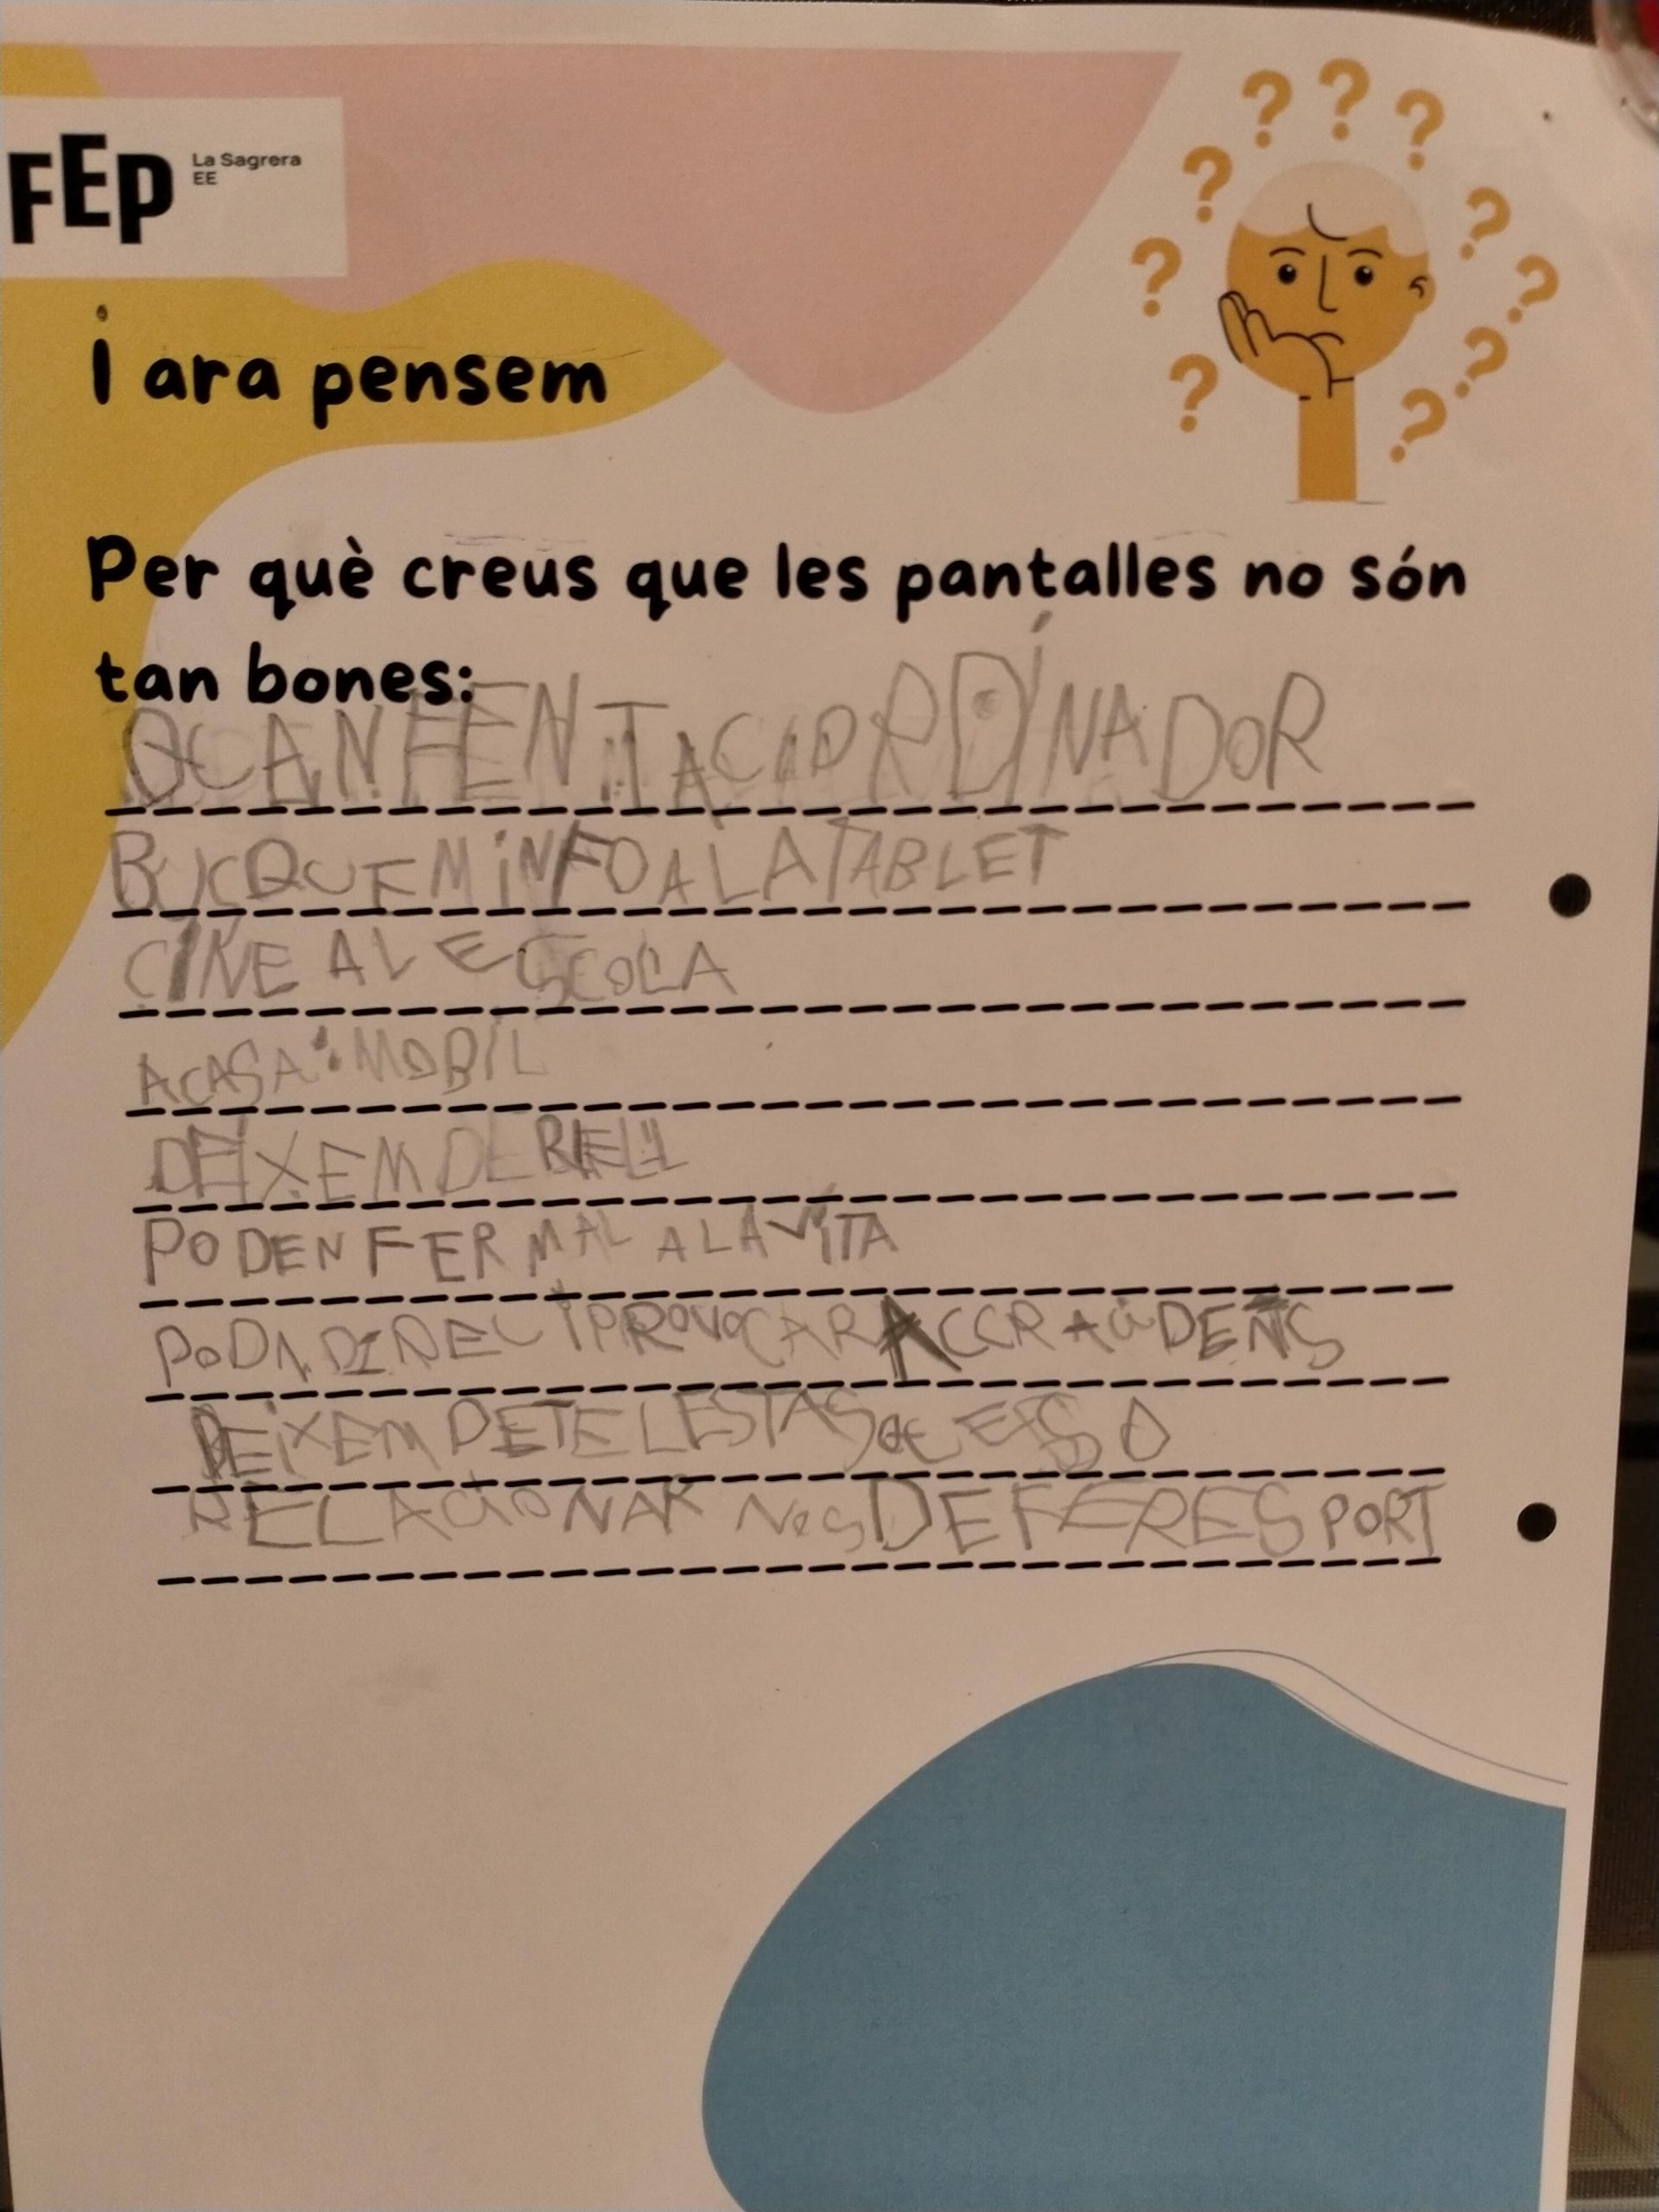 FEP La Sagrera
EE
i ara pensem
Per què creus que les pantalles no són
tan bones:
QUAN FEN ORDÍNADOR
BUSQUEM iNFO A LA TABLET
CINE A L ESCOLA
A CASA: MOBIL
DEIXEM DE
PODEN FER MAL A LA ViTA
PROVOCAR
DEiXEM DE
RELACiONAR NOS DE FER ESPORT